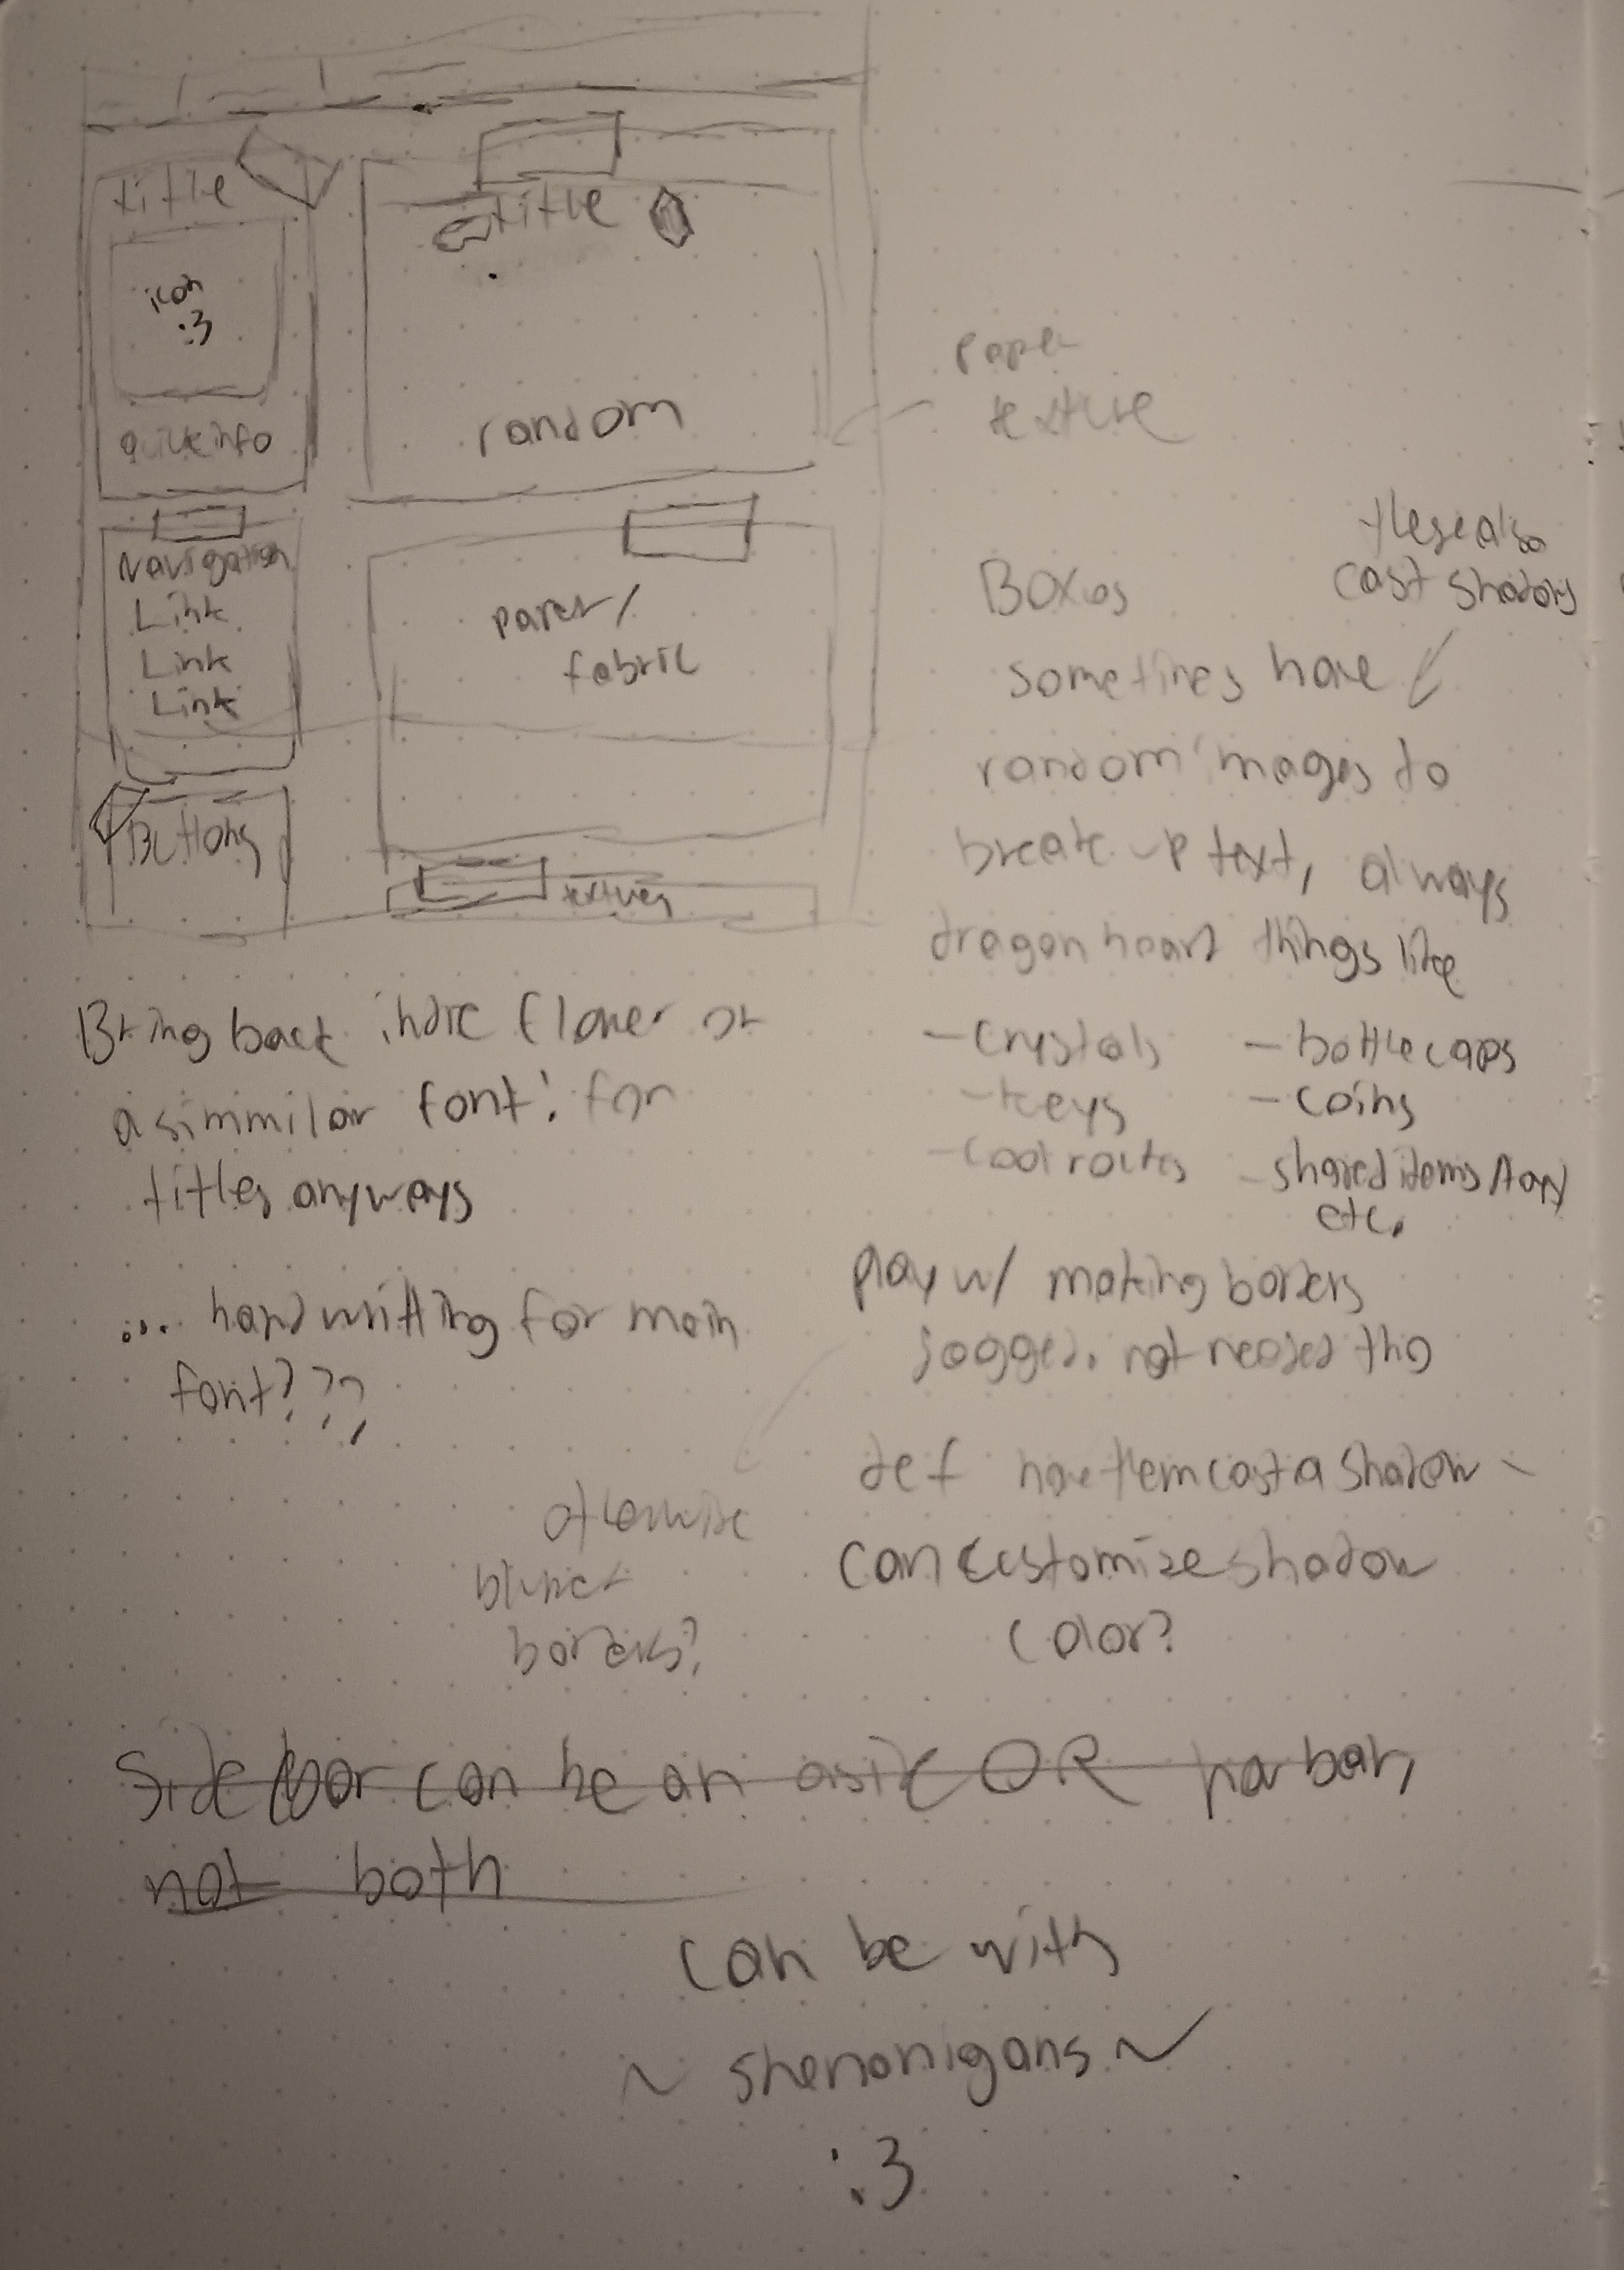 title
icon
:3
quickinfo
Navigation
Link
Link
Link
Buttons
title
random
paper/
fabric
textures
paper
texture
Boxes
sometimes have
random images to
break up text, always
dragon heart things like
- crystals
- keys
- cool rocks
- bottle caps
- coins
- shared items
etc.
these also
cast shadows
Bring back indie flower or
a simmilar font! for
titles anyways
... handwritting for main
font???
play w/ making borders
jagged. not needed tho
otherwise
borders?
def have them cast a shadow -
can customize shadow
color?
Side bar can be an aside OR navbar,
not both
can be with
~ shenanigans ~
:3